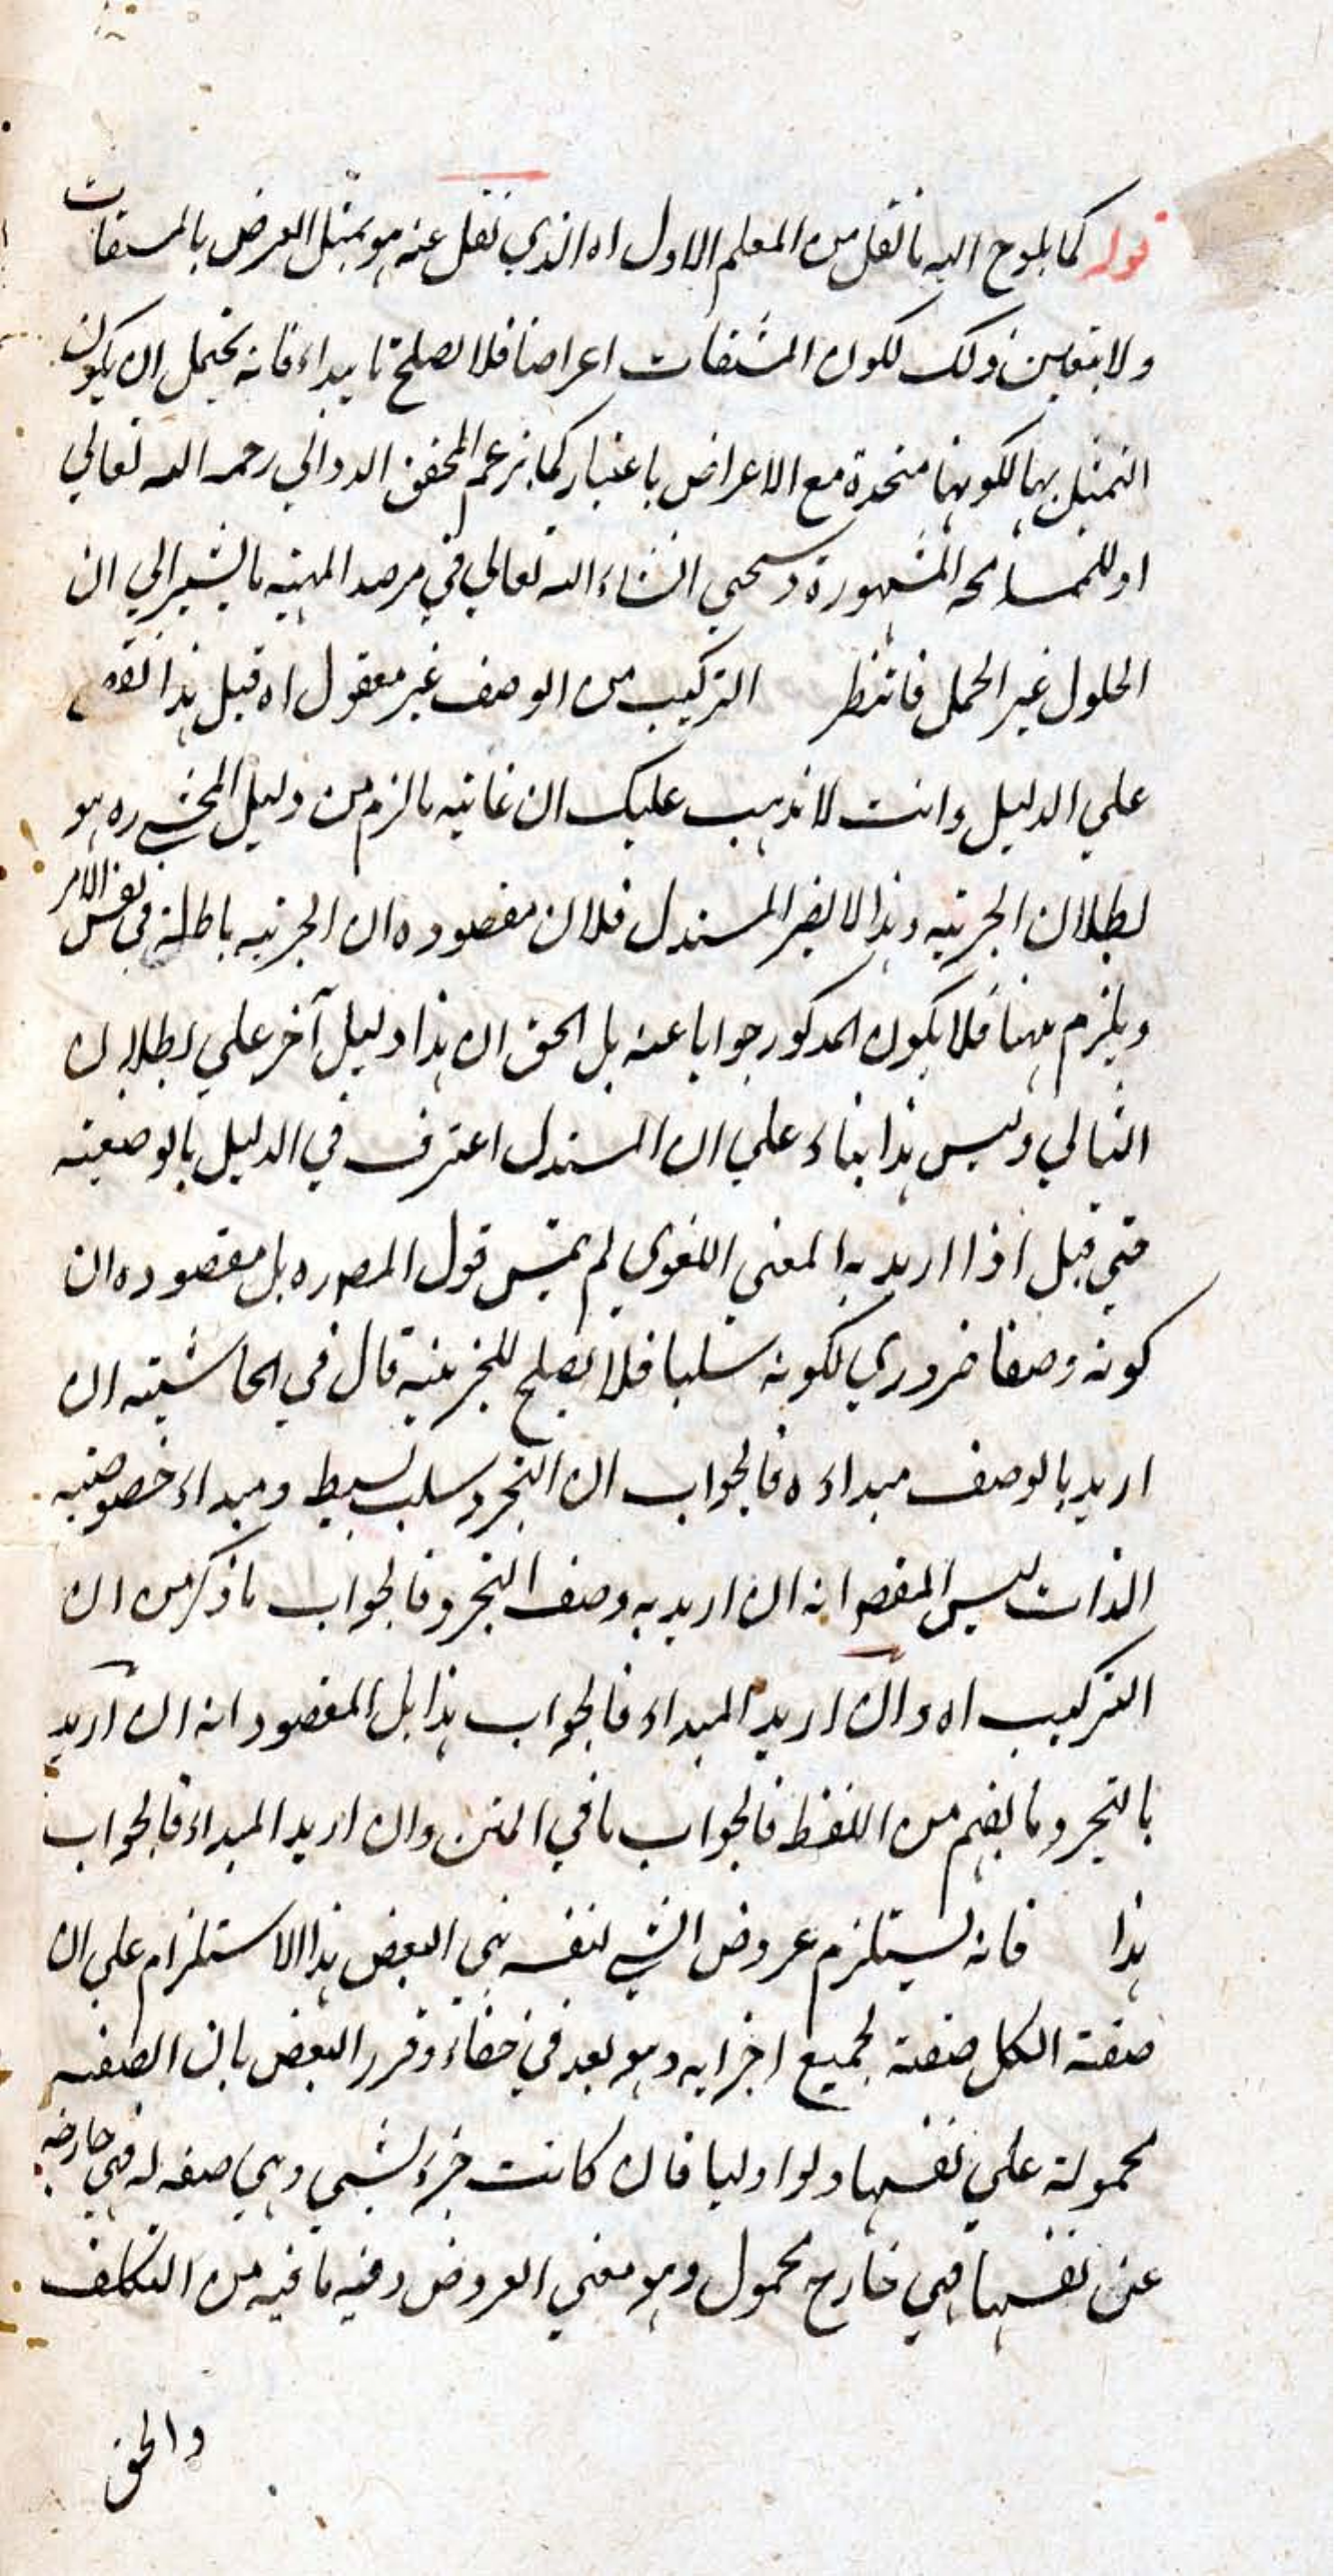 قوله كما يلوح اليه ما نقل من المعلم الاول اه الذي نقل عنه هو تمثيل العرض بالمشتقات
ولا يتعين ذلك لكون المشتقات اعراضا فلا يصلح تاييداء فانه يحتمل ان يكون
التمثيل بها لكونها متحدة مع الاعراض باعتبار كما يزعم المحقق الدواني رحمه الله تعالي
او للمسامحه المشهورة وسيجي انشاء الله تعالي في مرصد المهيه ما يشير الي ان
الحلول غير الحمل فانتظر التركيب من الوصف غير معقول اه قيل هذا نقض
علي الدليل وانت لا يذهب عليك ان غايته ما لزم من دليل المحشي ره هو
بطلان الجزئيه وهذا لا يضر المستدل فلان مقصوده ان الجزئيه باطلة في نفس الامر
ويلزم ههنا فلا يكون المذكور جوابا عنه بل الحق ان هذا دليل آخر علي بطلان
التالي وليس هذا بناء علي ان المستدل اعترف في الدليل بالوصفية
حتي قيل اذا اريد به المعني اللغوي لم يتمش قول المصره بل مقصوده ان
كونه وصفا ضروري لكونه سلبا فلا يصلح للجزئية قال في الحاشيته ان
اريد بالوصف مبداءه فالجواب ان التجرد سلب بسيط ومبداء خصوصيه
الذات ليس المقص انه ان اريد به وصف التجرد فالجواب ما ذكر من ان
التركيب اه وان اريد المبداء فالجواب هذا بل المقصود انه ان اريد
بالتجرد ما يفهم من اللفظ فالجواب ما في المتن وان اريد المبداء فالجواب
هذا فانه يستلزم عروض الشي لنفسه بني البعض هذا الاستلزام علي ان
صفة الكل صفة لجميع اجزايه وهو بعد في خفاء وقرر البعض بان الصفه
محمولة علي نفسها ولو اوليا فان كانت جزء لشي وهي صفه له فهي خارجه
عن نفسها فهي خارج محمول وهو معني العروض وفيه ما فيه من التكلف
والحق